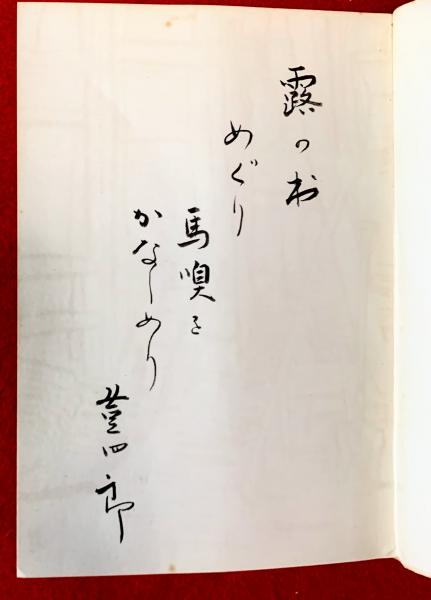 露の村
めぐり
馬嗅を
かなしめり
登四郎